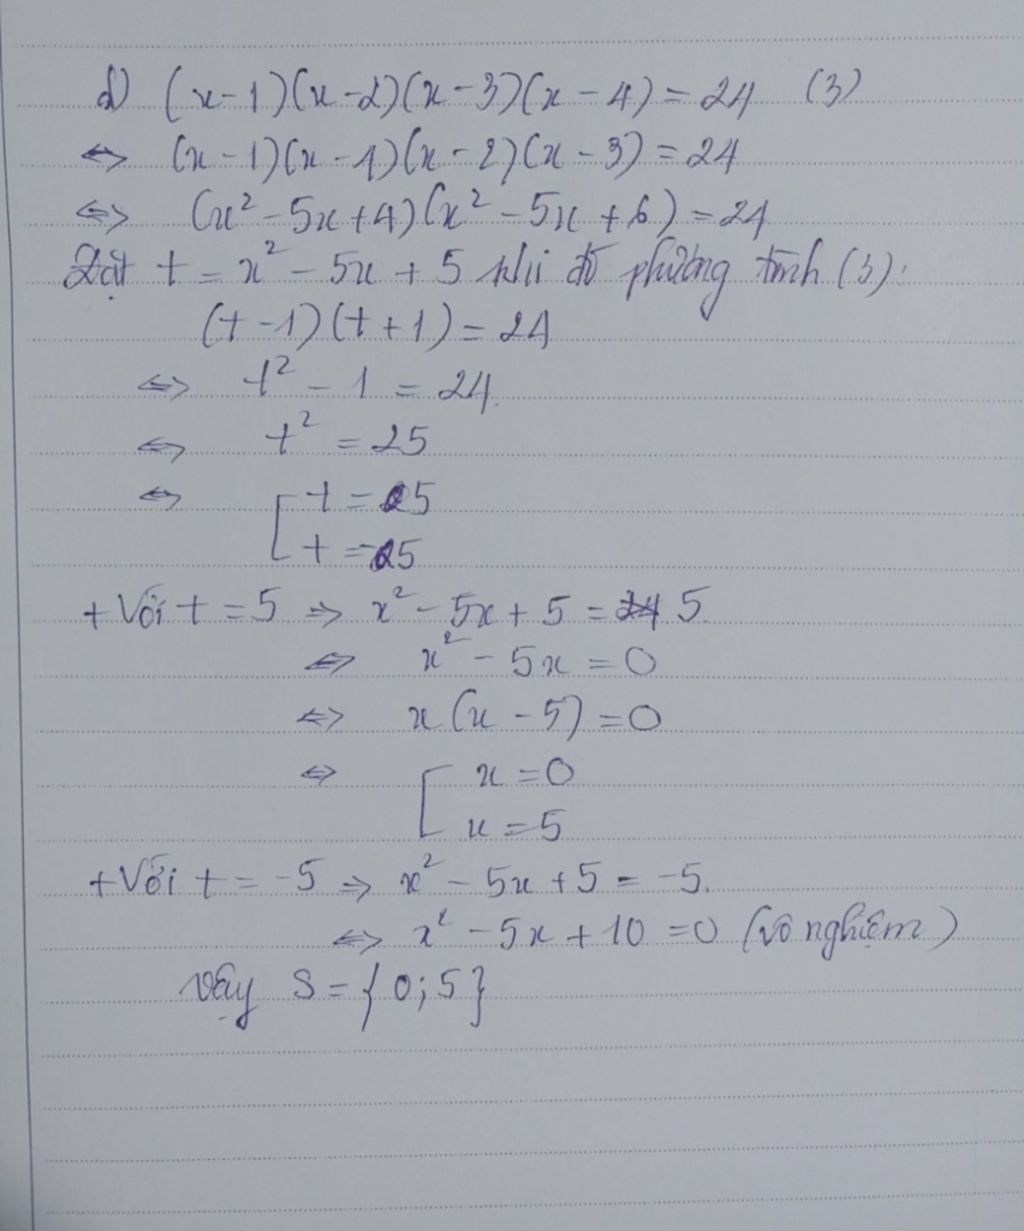 d) (x-1)(x-2)(x-3)(x-4) = 24 (3)
⇔ (x-1)(x-4)(x-2)(x-3) = 24
⇔ (x² - 5x + 4)(x² - 5x + 6) = 24
Đặt t = x² - 5x + 5 khi đó phương trình (3):
(t-1)(t+1) = 24
⇔ t² - 1 = 24.
⇔ t² = 25
⇔ [ t = 5
t = -5
+ Với t = 5 ⇒ x² - 5x + 5 = 5.
⇔ x² - 5x = 0
⇔ x(x - 5) = 0
⇔ [ x = 0
x = 5
+ Với t = -5 ⇒ x² - 5x + 5 = -5.
⇔ x² - 5x + 10 = 0 (vô nghiệm)
Vậy S = {0; 5}